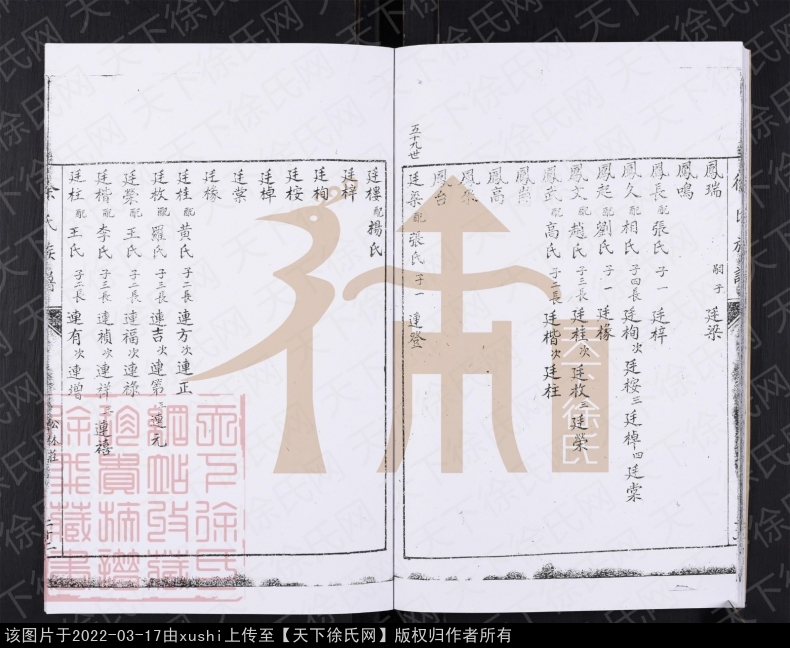 鳳瑞 嗣子 廷梁
鳳鳴
鳳長 配 張氏 子一 廷梓
鳳久 配 相氏 子四 長 廷栒 次 廷桉 三 廷棹 四 廷棠
鳳起 配 劉氏 子一 廷椽
鳳文 配 趙氏 子三 長 廷桂 次 廷枚 三 廷榮
鳳武 配 高氏 子二 長 廷楷 次 廷柱
鳳高
鳳台
五十九世
廷梁 配 張氏 子一 連登
廷樓 配 楊氏
廷梓
廷栒
廷桉
廷棹
廷棠
廷椽
廷桂 配 黃氏 子二 長 連方 次 連正
廷枚 配 羅氏 子三 長 連吉 次 連第 三 連元
廷榮 配 王氏 子二 長 連福 次 連祿
廷楷 配 李氏 子三 長 連禎 次 連祥 三 連禧
廷柱 配 王氏 子二 長 連有 次 連增
徐氏族譜
松林莊
天下徐氏
天下徐氏网
该图片于2022-03-17由xushi上传至【天下徐氏网】版权归作者所有